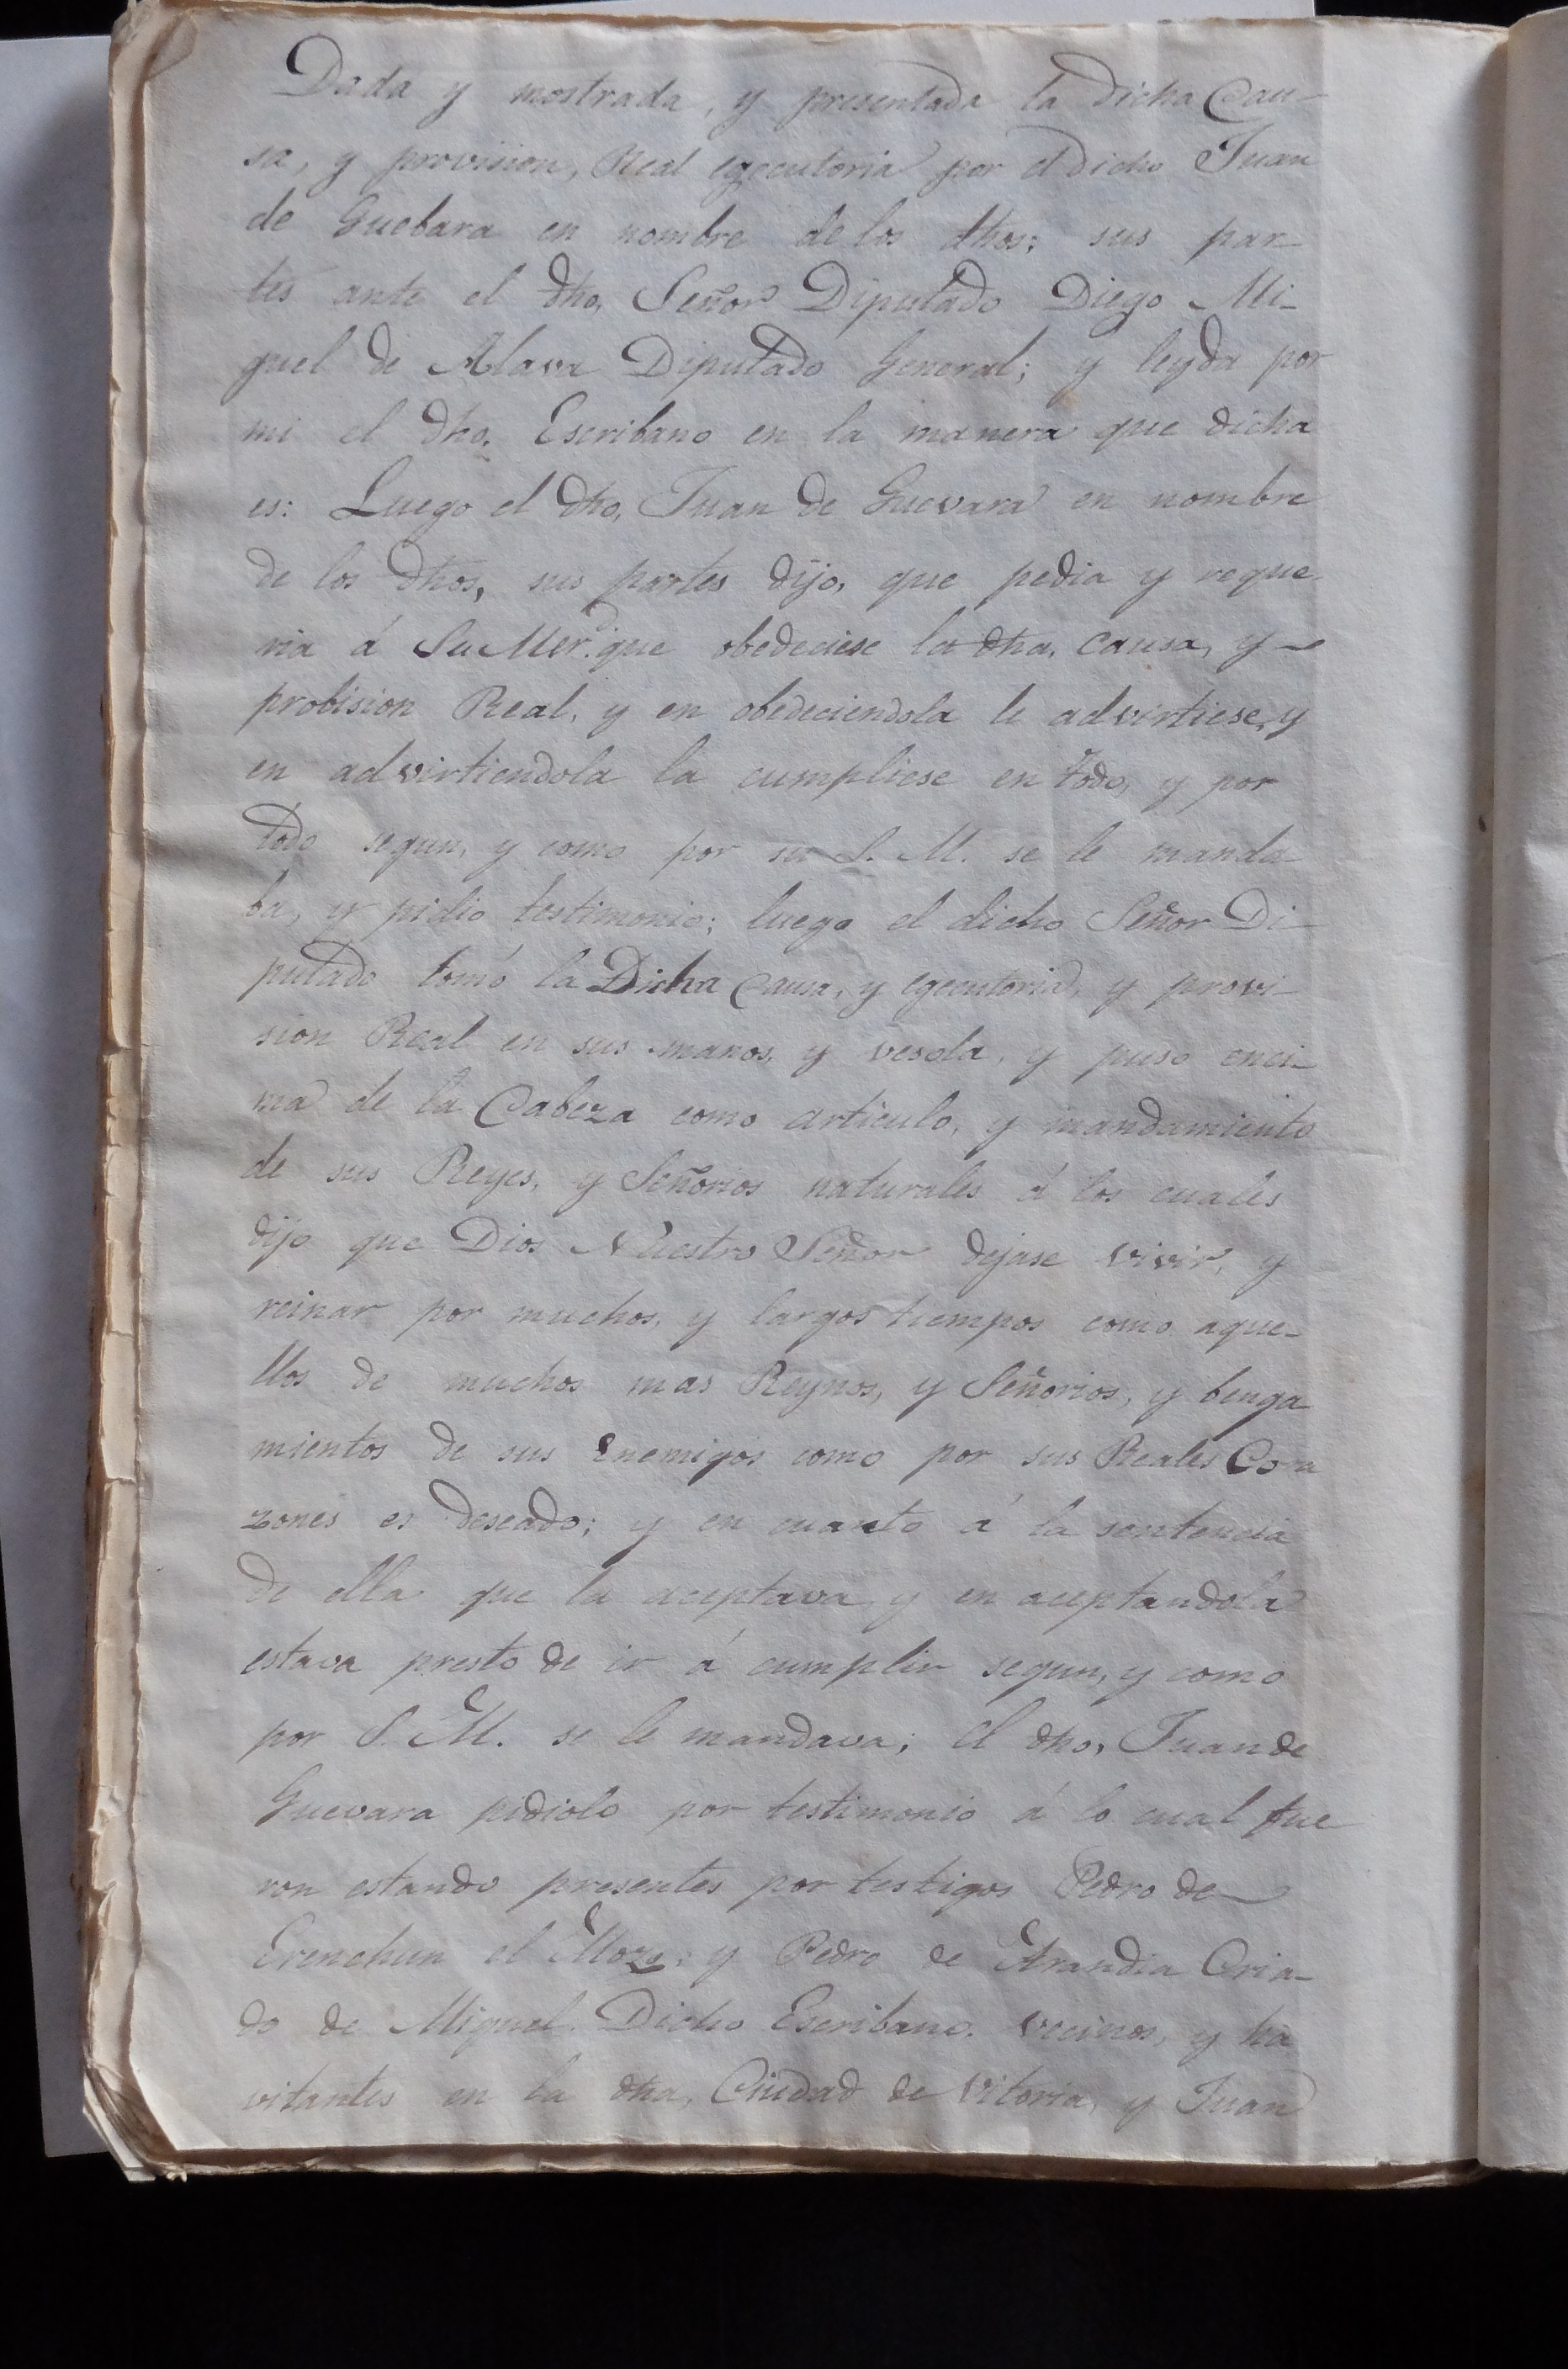 Dada y mostrada, y presentada la dicha Cau-
sa, y provision, Real egecutoria por el dicho Juan
de Guebara en nombre de los dhos: sus par-
tes ante el dho, Señor Diputado Diego Mi-
guel de Alava Diputado General; y leyda por
mi el dho. Escribano en la manera que dicha
es: Luego el dho, Juan de Guevara en nombre
de los dhos, sus partes dijo, que pedia y reque
ria á Su Mer.d que obedeciese la dha, causa, y
probision Real, y en obedeciendola le advirtiese, y
en advirtiendola la cumpliese en todo, y por
todo segun, y como por su S. M. se le manda-
ba, y pidio testimonio; luego el dicho Señor Di-
putado tomó la Dicha Causa, y egecutoria, y provi-
sion Real en sus manos, y vesola, y puso enci-
ma de la Cabeza como articulo, y mandamiento
de sus Reyes, y Señorios naturales á los cuales
dijo que Dios Nuestro Señor dejase vivir, y
reinar por muchos, y largos tiempos como aque-
llos de muchos mas Reynos, y Señorios, y benga
mientos de sus Enemigos como por sus Reales Cora
zones es deseado; y en cuanto á la sentencia
de ella que la aceptava, y en aceptandola
estava presto de ir á cumplir segun, y como
por S. M. se le mandava; el dho, Juan de
Guevara pidiolo por testimonio á lo cual fue
ron estando presentes por testigos Pedro de
Erenchun el Mozo: y Pedro de Arandia Cria-
do de Miguel. Dicho Escribano. vecinos, y ha
vitantes en la dha, Ciudad de Vitoria, y Juan